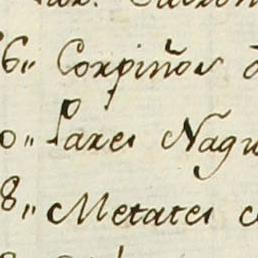 6,, Corpiños
0,, Pares Nagu
8,, Metates